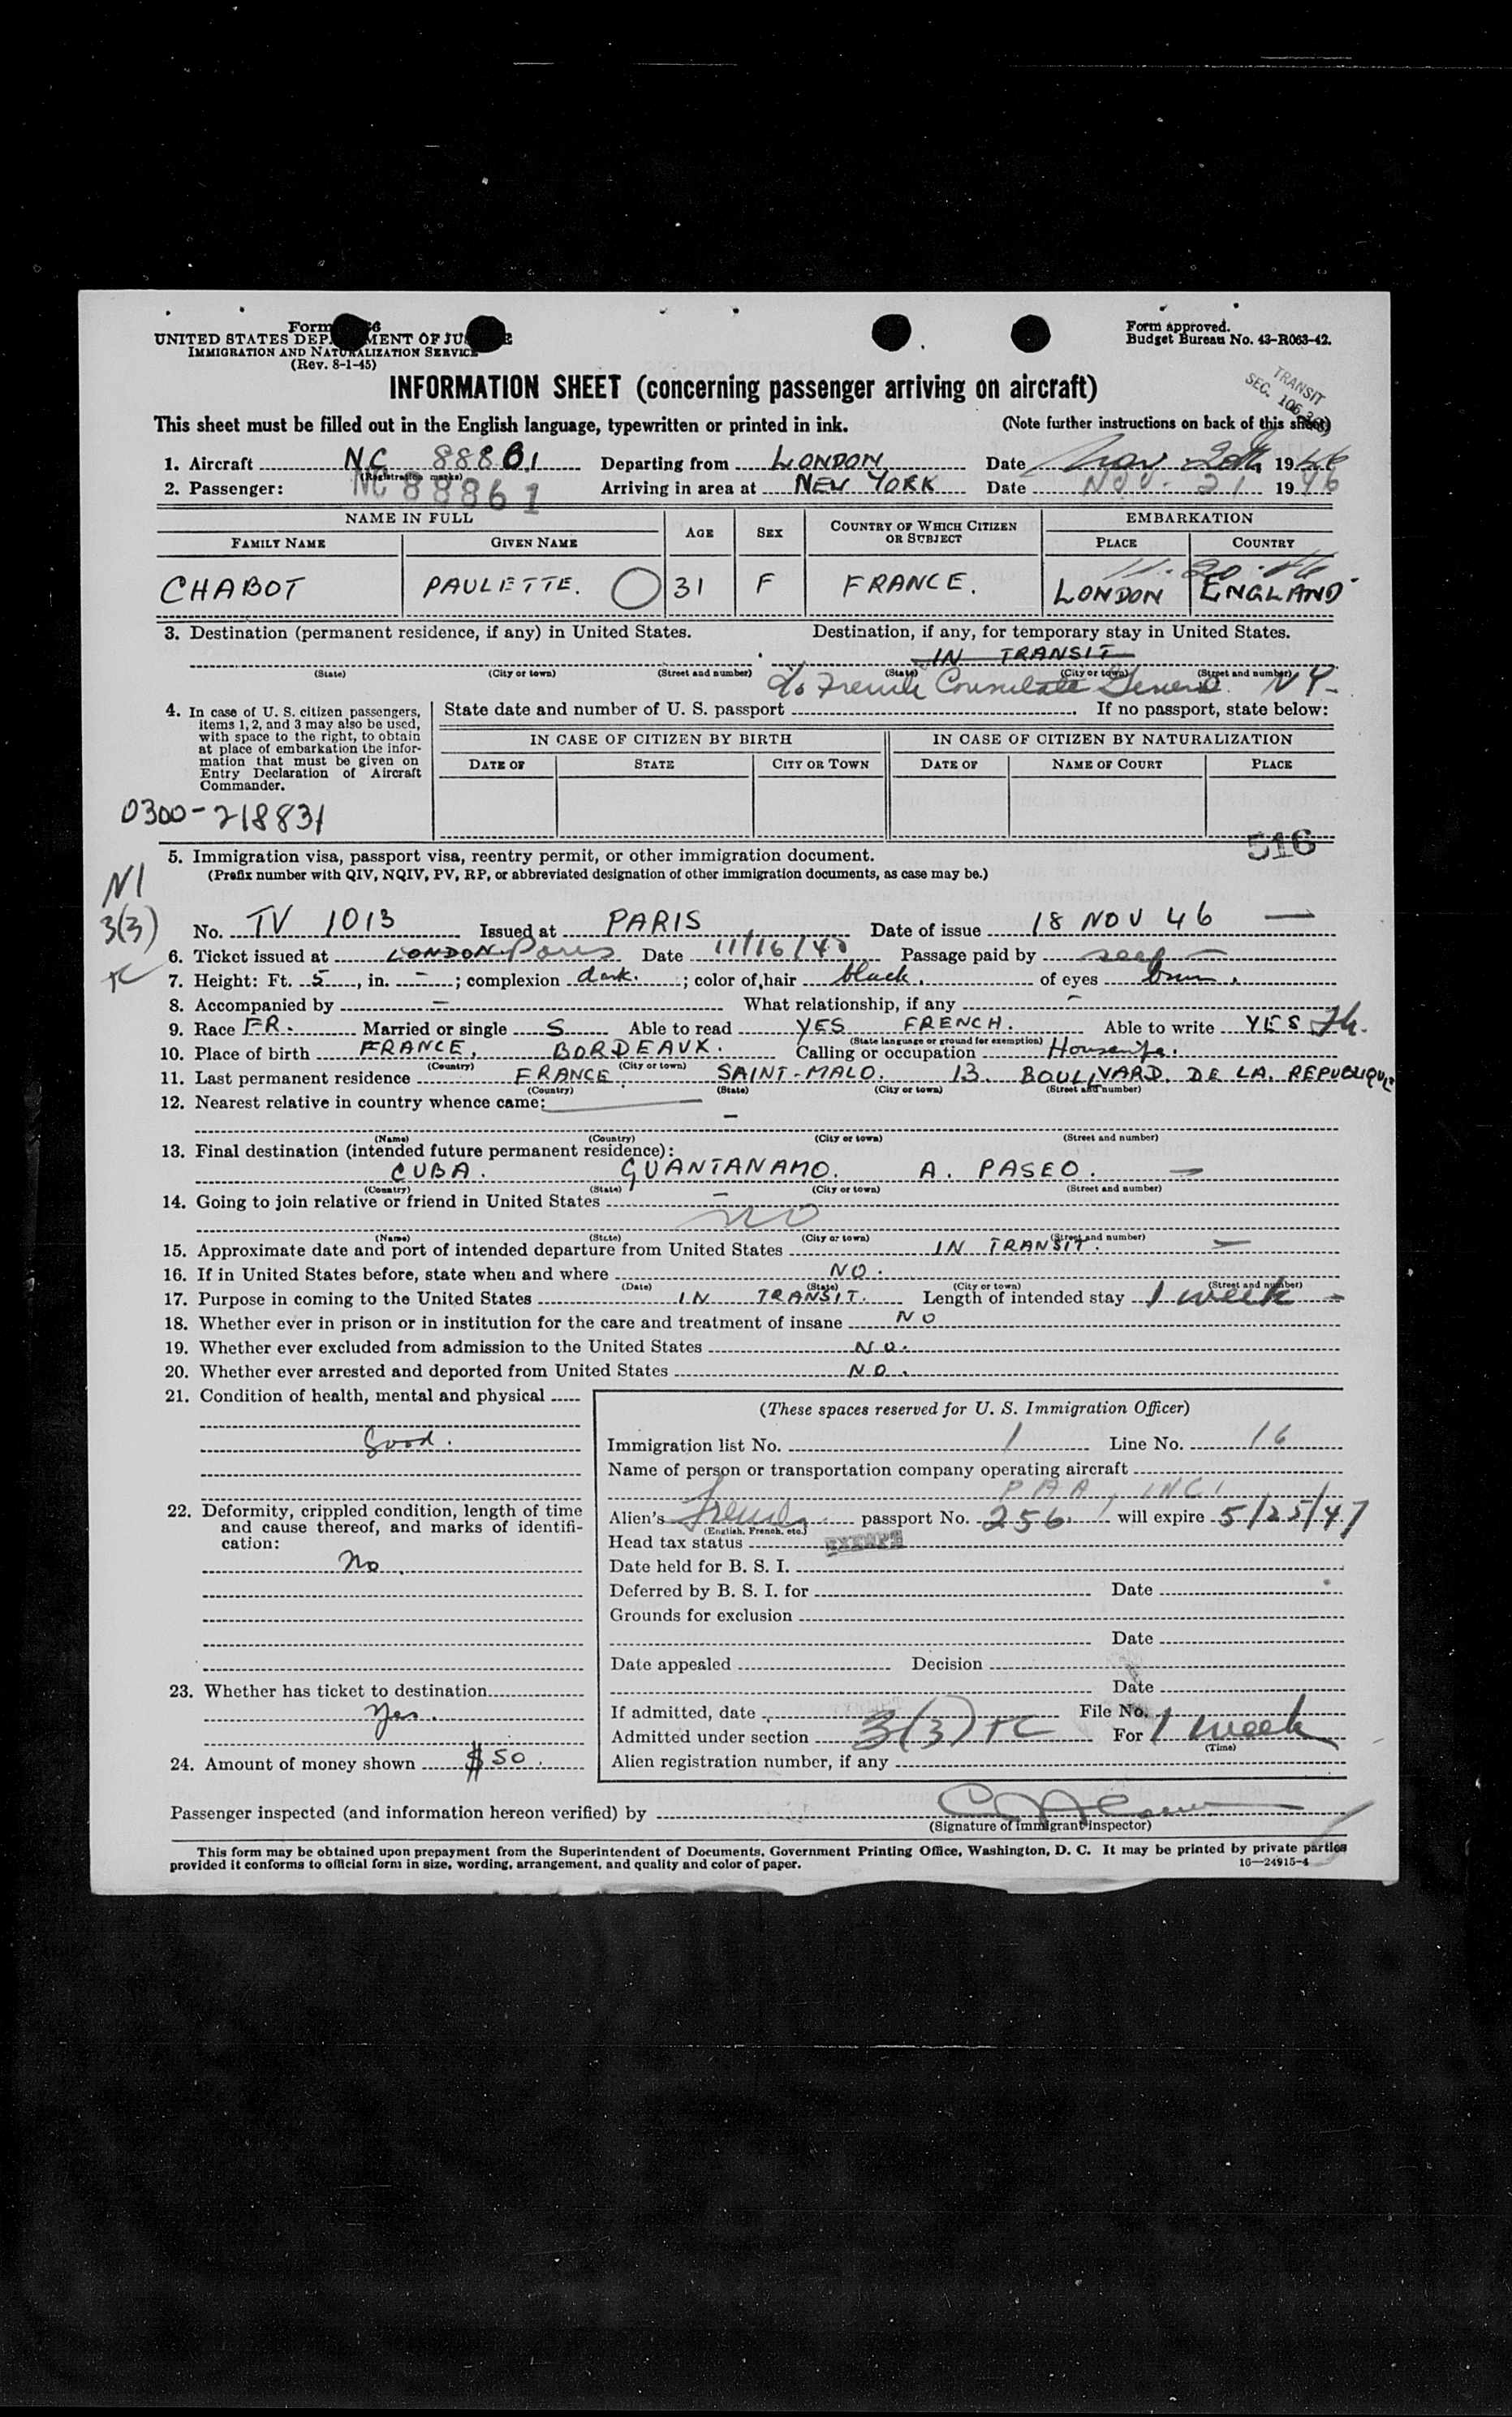 Form
UNITED STATES DEPARTMENT OF JUSTICE
IMMIGRATION AND NATURALIZATION SERVICE
(Rev. 8-1-45)
Form approved.
Budget Bureau No. 43-R063-42.
INFORMATION SHEET (concerning passenger arriving on aircraft)
TRANSIT
SEC. 106.3
This sheet must be filled out in the English language, typewritten or printed in ink. (Note further instructions on back of this sheet)
1. Aircraft NC 88861 Departing from LONDON Date Nov 20th 1946
(Registration marks)
2. Passenger: NC 88861 Arriving in area at NEW YORK Date NOV. 21 1946
NAME IN FULL AGE SEX COUNTRY OF WHICH CITIZEN OR SUBJECT EMBARKATION
FAMILY NAME GIVEN NAME PLACE COUNTRY
11-20-46
CHABOT PAULETTE. 31 F FRANCE. LONDON ENGLAND
3. Destination (permanent residence, if any) in United States. Destination, if any, for temporary stay in United States.
IN TRANSIT
(State) (City or town) (Street and number) (State) (City or town) (Street and number)
c/o French Consulate General NY-
4. In case of U. S. citizen passengers, items 1, 2, and 3 may also be used, with space to the right, to obtain at place of embarkation the information that must be given on Entry Declaration of Aircraft Commander.
State date and number of U. S. passport If no passport, state below:
IN CASE OF CITIZEN BY BIRTH IN CASE OF CITIZEN BY NATURALIZATION
DATE OF STATE CITY OR TOWN DATE OF NAME OF COURT PLACE
0300-218831
516
5. Immigration visa, passport visa, reentry permit, or other immigration document.
(Prefix number with QIV, NQIV, PV, RP, or abbreviated designation of other immigration documents, as case may be.)
N1
3(3)
TC
No. TV 1013 Issued at PARIS Date of issue 18 NOV 46
6. Ticket issued at LONDON Paris Date 11/16/46 Passage paid by self
7. Height: Ft. 5, in. -; complexion dark. ; color of hair black. of eyes brown.
8. Accompanied by - What relationship, if any -
9. Race FR. Married or single S Able to read YES FRENCH. Able to write YES
(State language or ground for exemption)
10. Place of birth FRANCE, BORDEAUX. Calling or occupation Housewife.
(Country) (City or town)
11. Last permanent residence FRANCE. SAINT-MALO. 13. BOULIVARD. DE LA. REPUBLIQUE
(Country) (State) (City or town) (Street and number)
12. Nearest relative in country whence came: -
(Name) (Country) (City or town) (Street and number)
13. Final destination (intended future permanent residence):
CUBA. GUANTANAMO. A. PASEO.
(Country) (State) (City or town) (Street and number)
14. Going to join relative or friend in United States -
NO
(Name) (State) (City or town) (Street and number)
15. Approximate date and port of intended departure from United States IN TRANSIT.
16. If in United States before, state when and where NO.
(Date) (State) (City or town) (Street and number)
17. Purpose in coming to the United States IN TRANSIT. Length of intended stay 1 week
18. Whether ever in prison or in institution for the care and treatment of insane NO
19. Whether ever excluded from admission to the United States NO.
20. Whether ever arrested and deported from United States NO.
21. Condition of health, mental and physical
Good.
22. Deformity, crippled condition, length of time and cause thereof, and marks of identification:
No.
23. Whether has ticket to destination
Yes.
24. Amount of money shown $50.
(These spaces reserved for U. S. Immigration Officer)
Immigration list No. 1 Line No. 16
Name of person or transportation company operating aircraft
PAA, INC.
Alien's French passport No. 256 will expire 5/25/47
(English, French, etc.)
Head tax status EXEMPT
Date held for B. S. I.
Deferred by B. S. I. for Date
Grounds for exclusion
Date
Date appealed Decision
Date
If admitted, date File No.
Admitted under section 3(3) TC For 1 week
(Time)
Alien registration number, if any
Passenger inspected (and information hereon verified) by
(Signature of immigrant inspector)
This form may be obtained upon prepayment from the Superintendent of Documents, Government Printing Office, Washington, D. C. It may be printed by private parties
provided it conforms to official form in size, wording, arrangement, and quality and color of paper. 16—24915-4